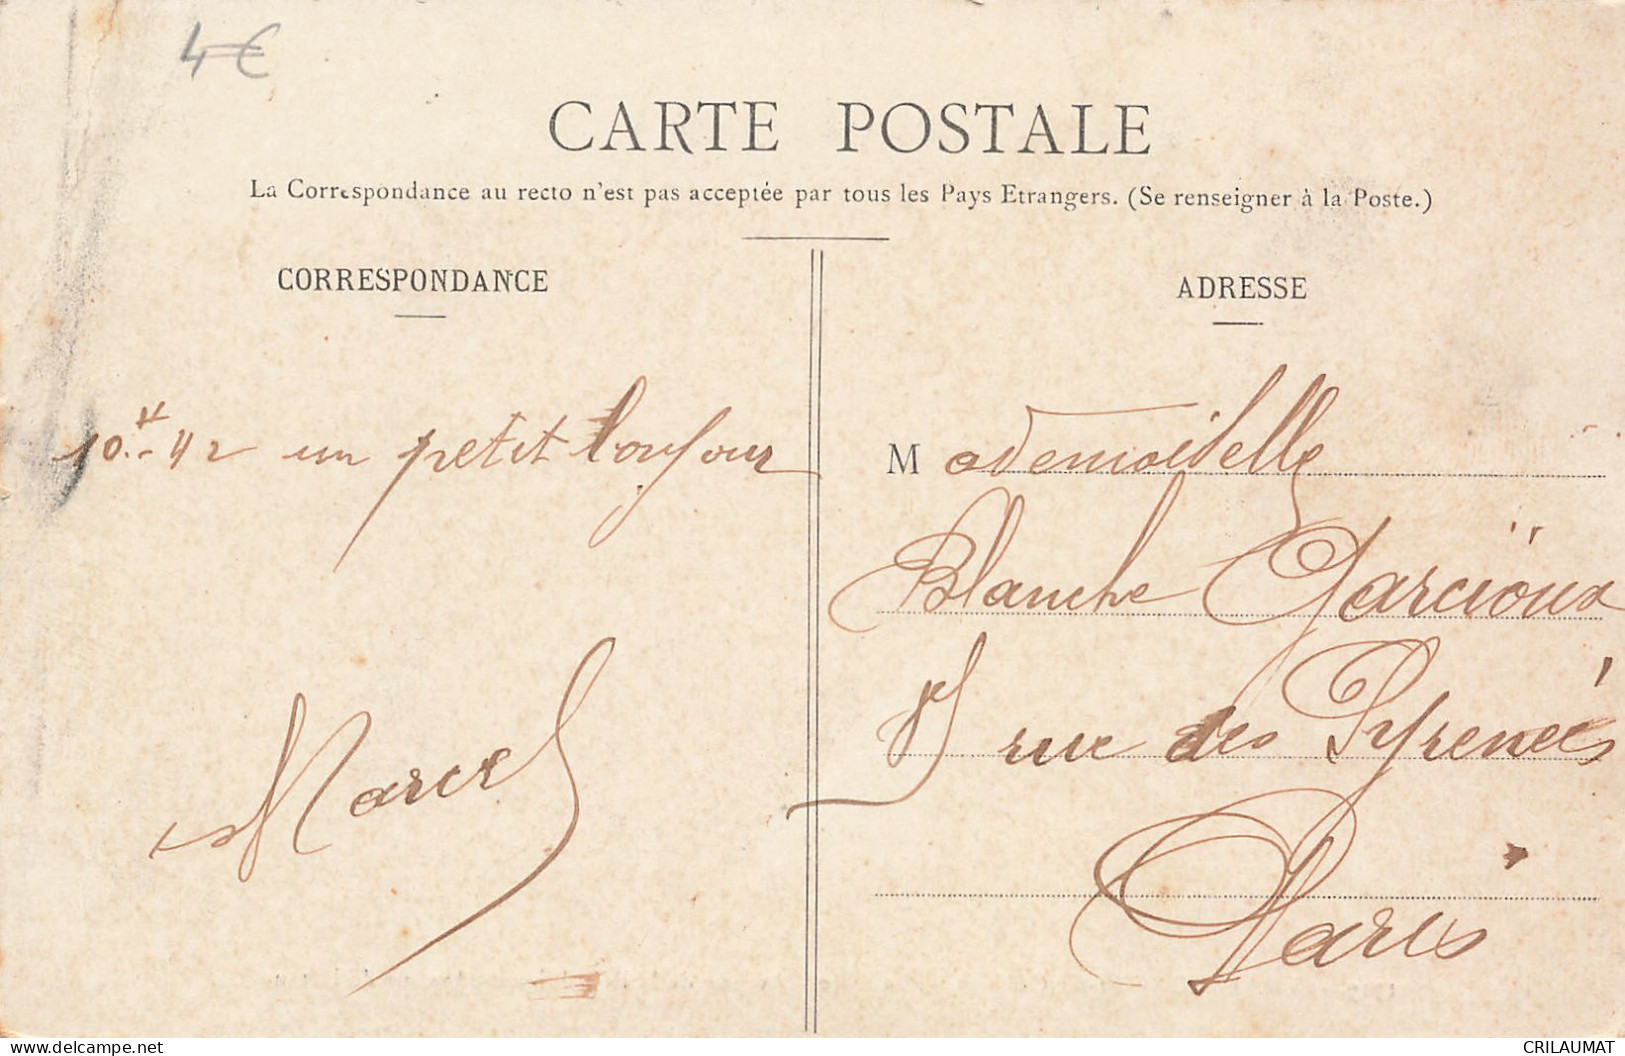 4€
CARTE POSTALE
La Correspondance au recto n'est pas acceptée par tous les Pays Etrangers. (Se renseigner à la Poste.)
CORRESPONDANCE
ADRESSE
un petit
Mademoiselle
Blanche Garcioux
rue des Pyrenées
Marcel
Paris
CRILAUMAT
delcampe.net